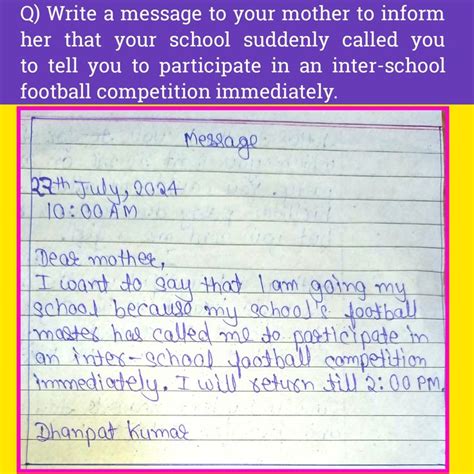 Q) Write a message to your mother to inform
her that your school suddenly called you
to tell you to participate in an inter-school
football competition immediately.
Message
27th July, 2024
10:00 AM
Dear mother,
I want to say that I am going my
school because my school's football
master has called me to participate in
an inter-school football competition
immediately. I will return till 2:00 PM.
Dhanpat Kumar